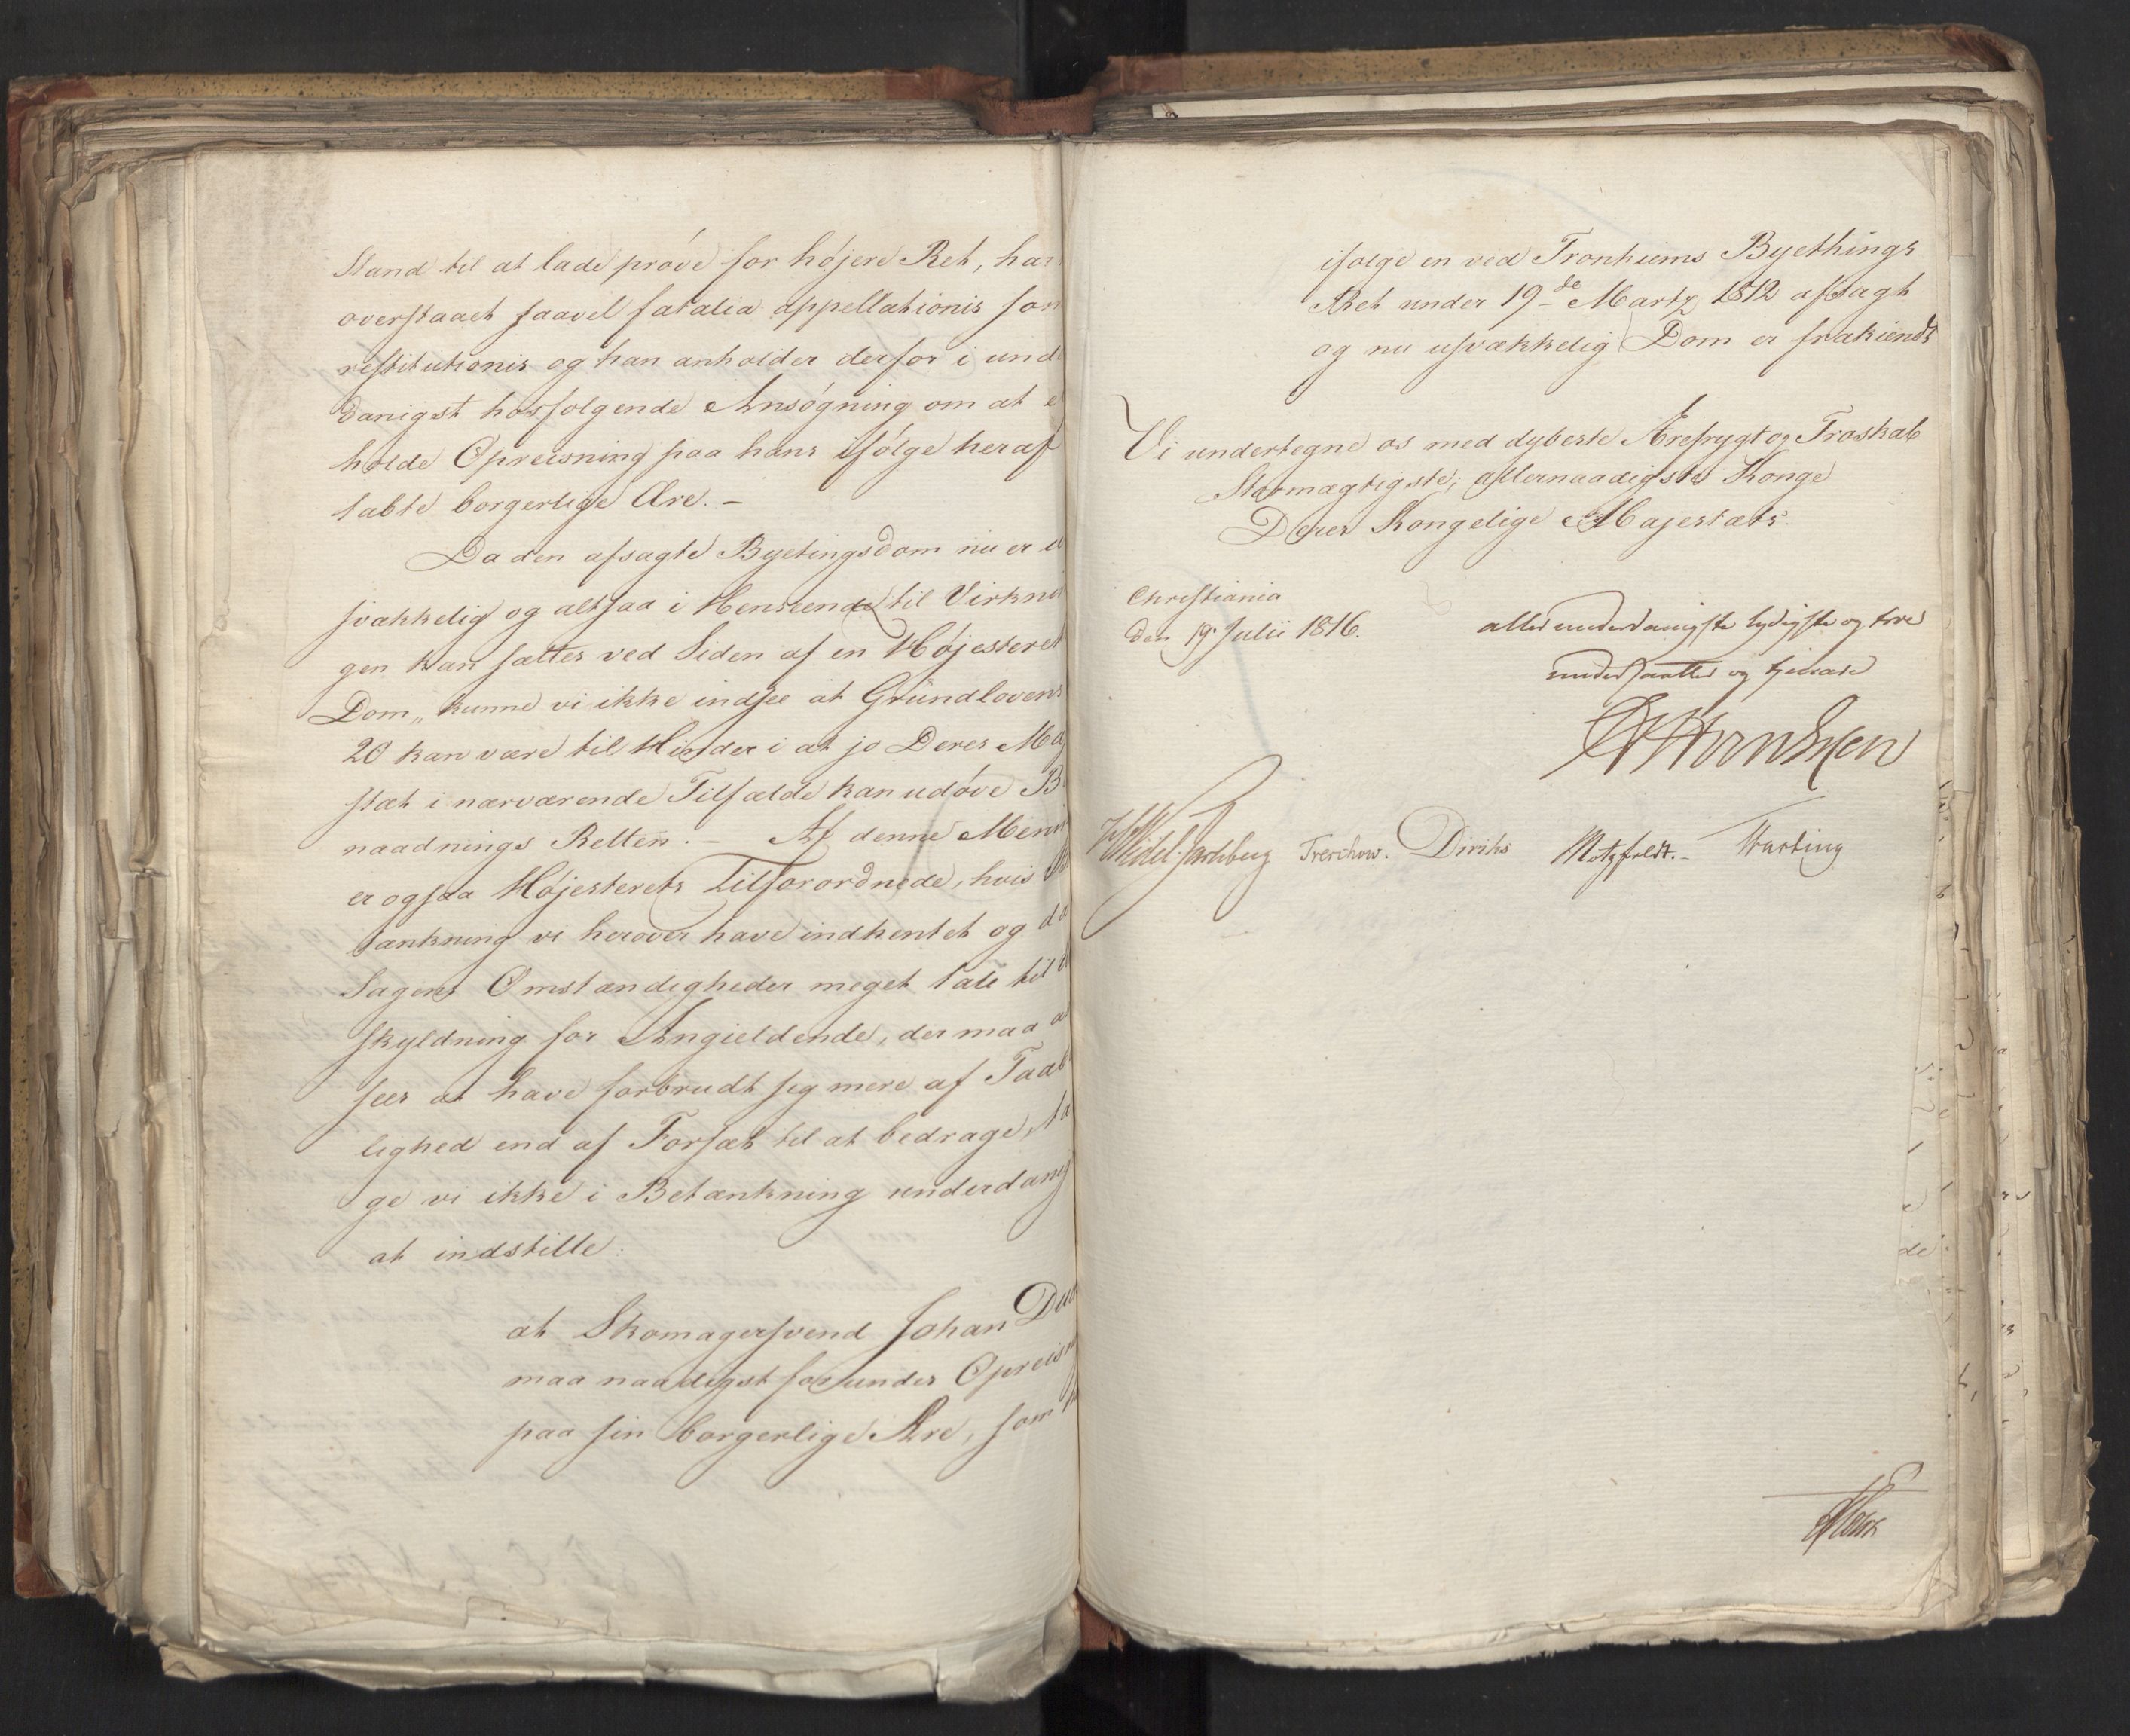 Stand til at lade prøve for højere Ret, har
overstaaet saavel fatalia appellationis som
restitutionis og han anholder derfor i und
danigst hosfølgende Ansøgning om at e
holde Opreisning paa hans ifølge heraf
tabte borgerlige Ære. –
Da den afsagte Byetingsdom nu er u
svækkelig og altsaa i Henseende til Virknin
gen kan sættes ved Siden af en Højesteret
Dom, kunne vi ikke indsee at Grundlovens
20 kan være til Hinder i at jo Deres Maj
stæt i nærværende Tilfælde kan udøve B
naadnings Retten. – Af denne Meni
er ogsaa Højesterets Tilforordnede, hvis
tænkning vi herover have indhentet og da
Sagens Omstændigheder meget tale til
skyldning for Angieldende, der maa a
sees at have forbrudt sig mere af Taab
lighed end af Forsæt til at bedrage, ta
ge vi ikke i Betænkning underdanig
at indstille:
at Skomagersvend Johan
maa naadigst forundes Opreisn
paa sin borgerlige Ære, som
ifølge en ved Tronhiems Byethings
Ret under 19de Martz 1812 afsagt
og nu usvækkelig Dom er frakiendt
Vi undertegne os med dybeste Ærefrygt og Troskab
Stormægtigste, allernaadigste Konge
Deres Kongelige Majestæts
Christiania
den 19. Julii 1816.
allerunderdanigste lydigste og troe
undersaatter og tjenere
Wedel-Jarlsberg Treschow. Diriks Motzfeldt. –